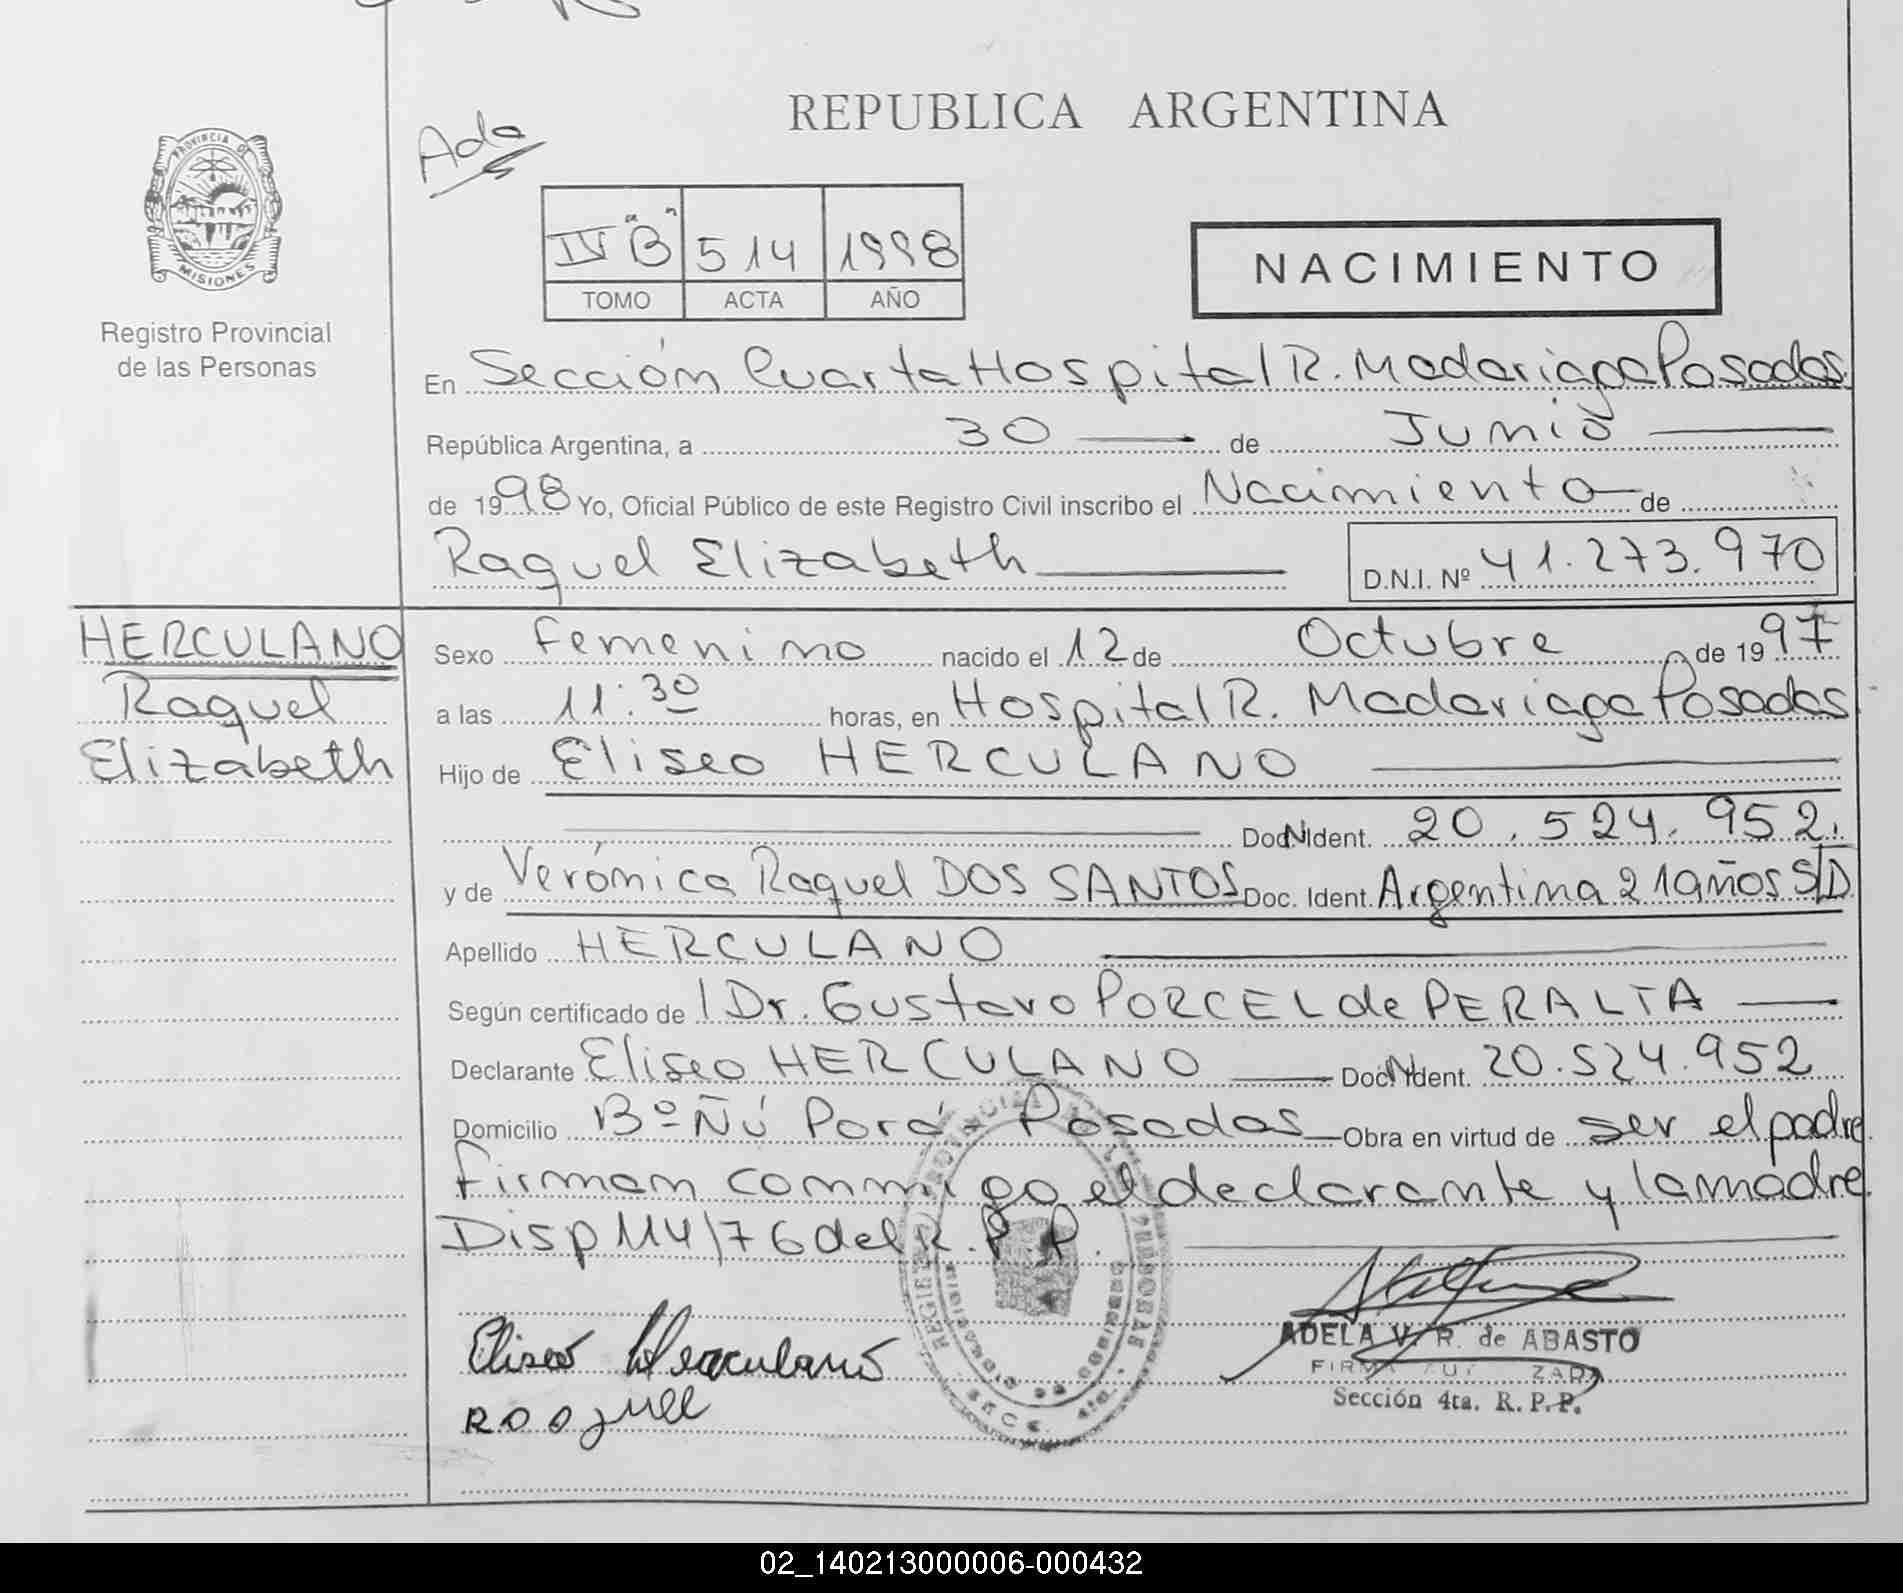 REPUBLICA ARGENTINA
Ada
PROVINCIA DE
MISIONES
Registro Provincial
de las Personas
IV "B" 514 1998
TOMO ACTA AÑO
NACIMIENTO
En Sección Cuarta Hospital R. Madariaga Posadas
República Argentina, a 30 de Junio
de 1998 Yo, Oficial Público de este Registro Civil inscribo el Nacimiento de
Raquel Elizabeth D.N.I. Nº 41.273.970
HERCULANO
Raquel
Elizabeth
Sexo femenino nacido el 12 de Octubre de 1997
a las 11:30 horas, en Hospital R. Madariaga Posadas
Hijo de Eliseo HERCULANO
Doc. Ident. 20.524.952
y de Verónica Raquel DOS SANTOS Doc. Ident. Argentina 21 años S/D
Apellido HERCULANO
Según certificado de l Dr. Gustavo PORCEL de PERALTA
Declarante Eliseo HERCULANO Doc. Ident. 20.524.952
Domicilio Bº Ñú Porá Posadas Obra en virtud de ser el padre
firman conmigo el declarante y la madre
Disp 114/76 del R.P.P.
Eliseo Herculano
ADELA V. R. de ABASTO
Sección 4ta. R. P. P.
02_140213000006-000432